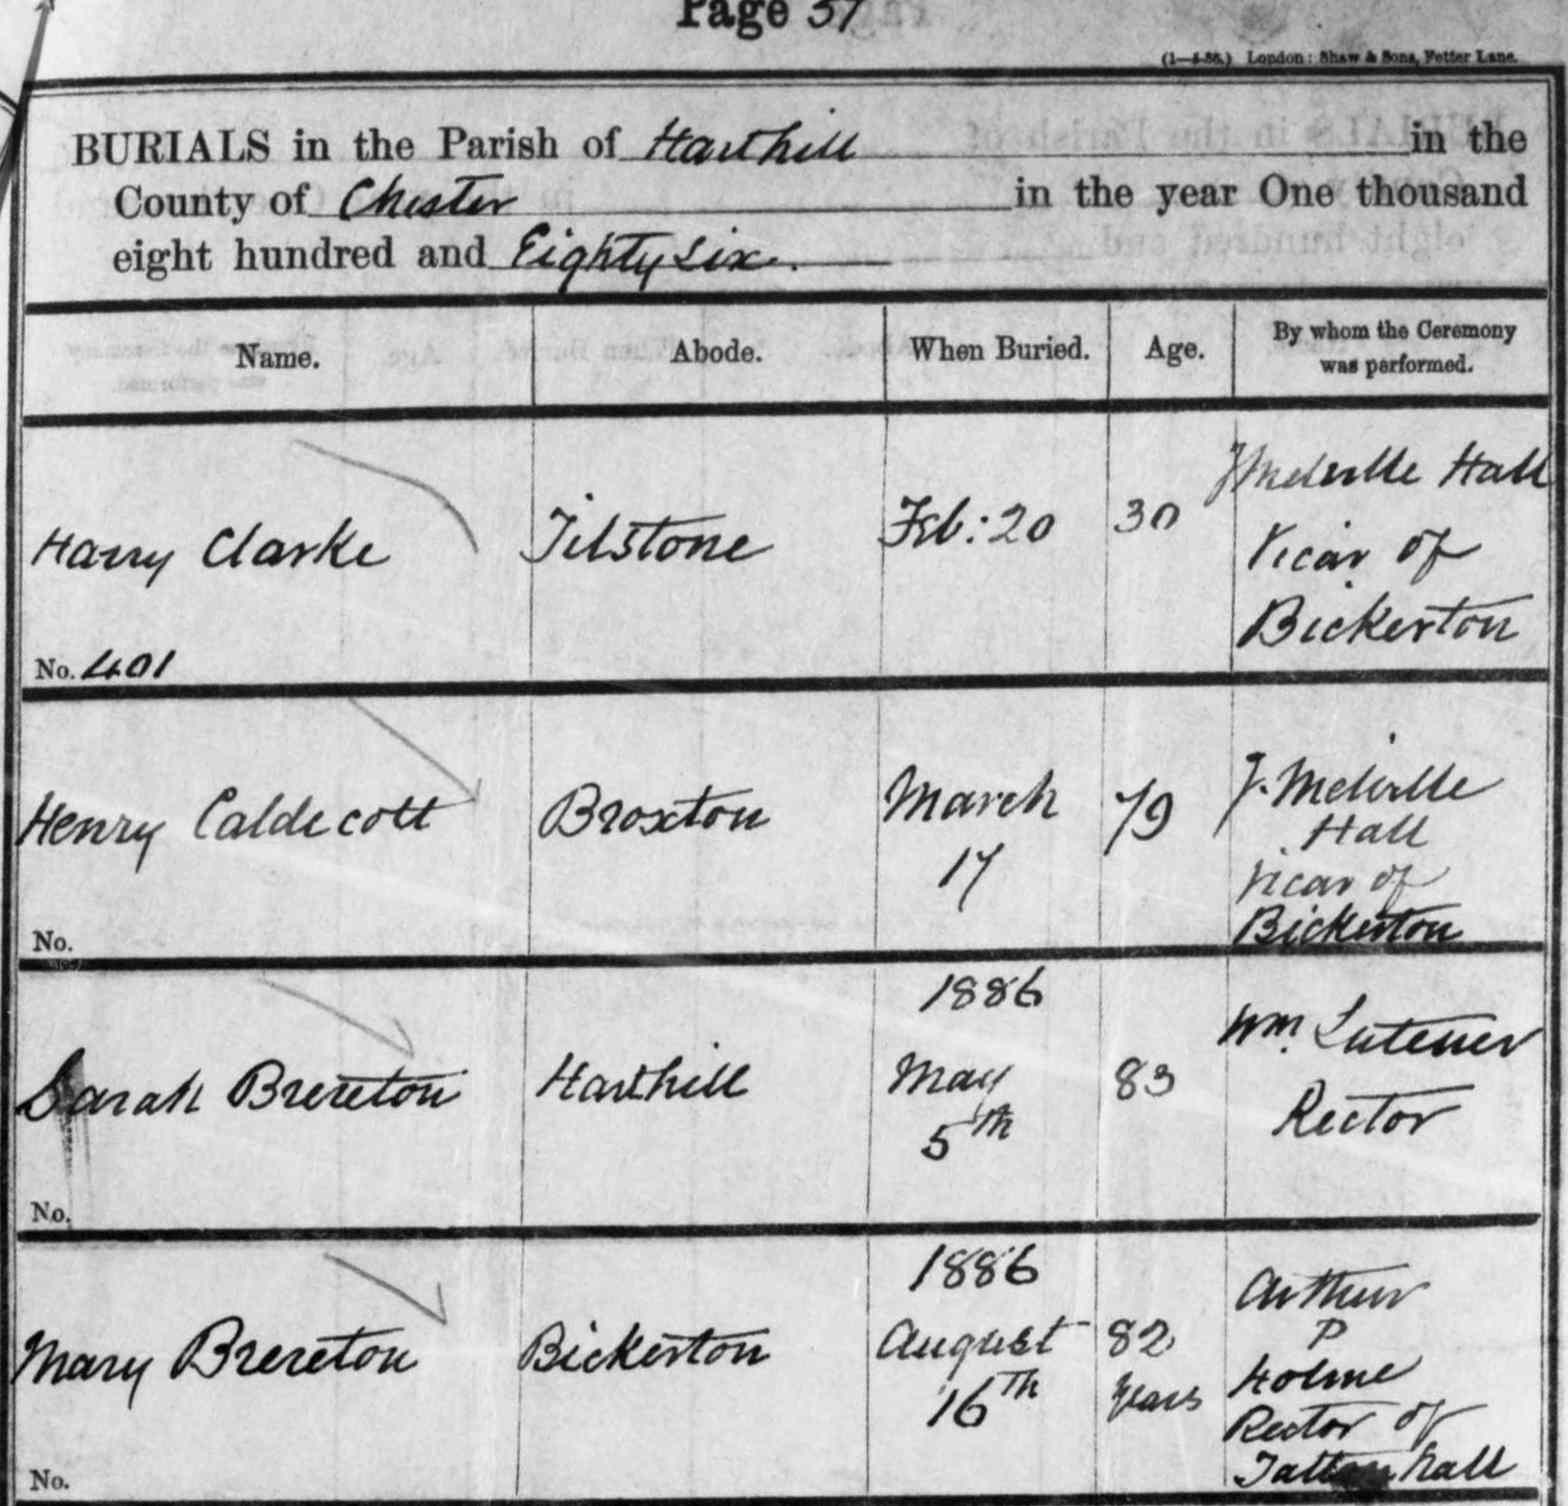 Page 51
(1—4-86.) London: Shaw & Sons, Fetter Lane.
BURIALS in the Parish of Harthill in the
County of Chester in the year One thousand
eight hundred and Eighty six.
Name. Abode. When Buried. Age. By whom the Ceremony
was performed.
Harry Clarke Tilstone Feb: 20 30 J Melville Hall
Vicar of
Bickerton
No. 401
Henry Caldecott Broxton March 79 J. Melville
17 Hall
Vicar of
Bickerton
No.
Sarah Brereton Harthill 1886 83 Wm. Lutener
May Rector
5th
No.
Mary Brereton Bickerton 1886 82 Arthur
August years P
16th Holme
Rector of
Tattenhall
No.